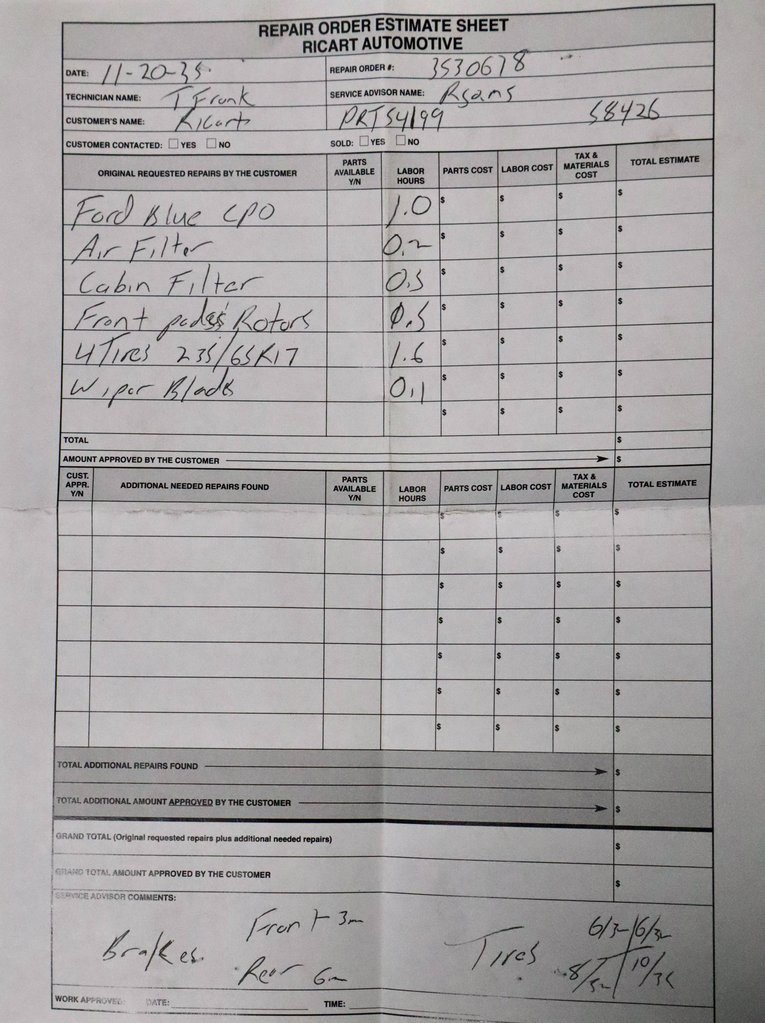 REPAIR ORDER ESTIMATE SHEET
RICART AUTOMOTIVE
DATE: 11-20-35 REPAIR ORDER #: 3530678
TECHNICIAN NAME: T Frank SERVICE ADVISOR NAME:
CUSTOMER'S NAME: Ricart PRTS4199 58426
CUSTOMER CONTACTED: YES NO SOLD: YES NO
ORIGINAL REQUESTED REPAIRS BY THE CUSTOMER PARTS AVAILABLE Y/N LABOR HOURS PARTS COST LABOR COST TAX & MATERIALS COST TOTAL ESTIMATE
Ford Blue CPO 1.0 $ $ $ $
Air Filter 0.2 $ $ $ $
Cabin Filter 0.3 $ $ $ $
Front pads Rotors 0.5 $ $ $ $
4 Tires 235/65R17 1.6 $ $ $ $
Wiper Blades 0.1 $ $ $ $
$ $ $ $
TOTAL $
AMOUNT APPROVED BY THE CUSTOMER $
CUST. APPR. Y/N ADDITIONAL NEEDED REPAIRS FOUND PARTS AVAILABLE Y/N LABOR HOURS PARTS COST LABOR COST TAX & MATERIALS COST TOTAL ESTIMATE
$ $ $ $
$ $ $ $
$ $ $ $
$ $ $ $
$ $ $ $
$ $ $ $
$ $ $ $
TOTAL ADDITIONAL REPAIRS FOUND $
TOTAL ADDITIONAL AMOUNT APPROVED BY THE CUSTOMER $
GRAND TOTAL (Original requested repairs plus additional needed repairs) $
GRAND TOTAL AMOUNT APPROVED BY THE CUSTOMER $
SERVICE ADVISOR COMMENTS:
Front 3m 6/32 6/32
Brakes Tires
Rear 6m 8/32 10/32
WORK APPROVED: DATE: TIME: